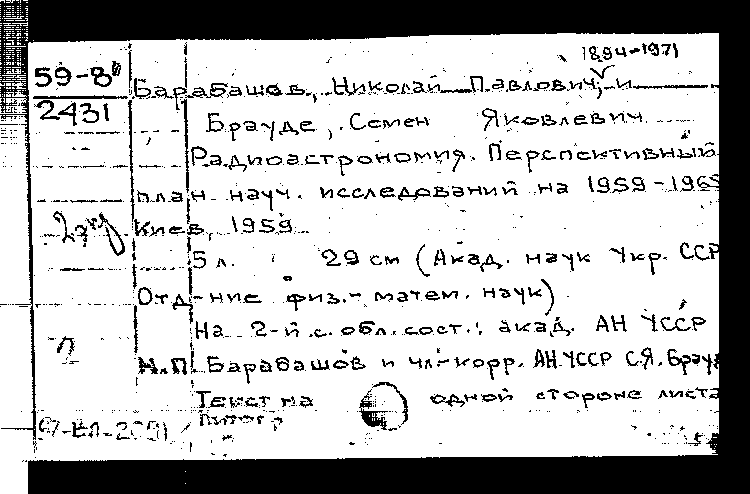 1894-1971
59-8
2431
Барабашов, Николай Павлович, и
Брауде, Семен Яковлевич
Радиоастрономия. Перспективный
план науч. исследований на 1959-1965
Киев, 1959
5 л. 29 см (Акад. наук Укр. ССР
Отд-ние физ.-матем. наук)
На 2-й с. обл. сост.: акад. АН УССР
Н.П. Барабашов и чл-корр. АН УССР С.Я. Брауд
Текст на одной стороне листа